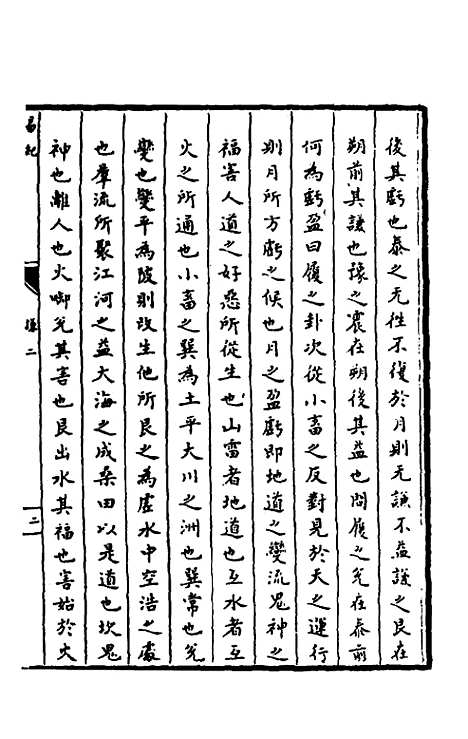 後其虧也泰之无往不復於月則无謙不益謙之艮在
朔前其謙也豫之震在朔後其益也問履之兌在泰前
何為虧盈曰履之卦次從小畜之反對見於天之運行
則月所方虧之候也月之盈虧即地道之變流鬼神之
福害人道之好惡所從生也山雷者地道也互水者互
火之所通也小畜之巽為土平大川之洲也巽常也兌
變也變平為陂則改生他所艮之為虛水中空浩之處
也羣流所聚江河之益大海之成桑田以是道也坎鬼
神也離人也火啣兌其害也艮出水其福也害始於火
易紀
謙二
二